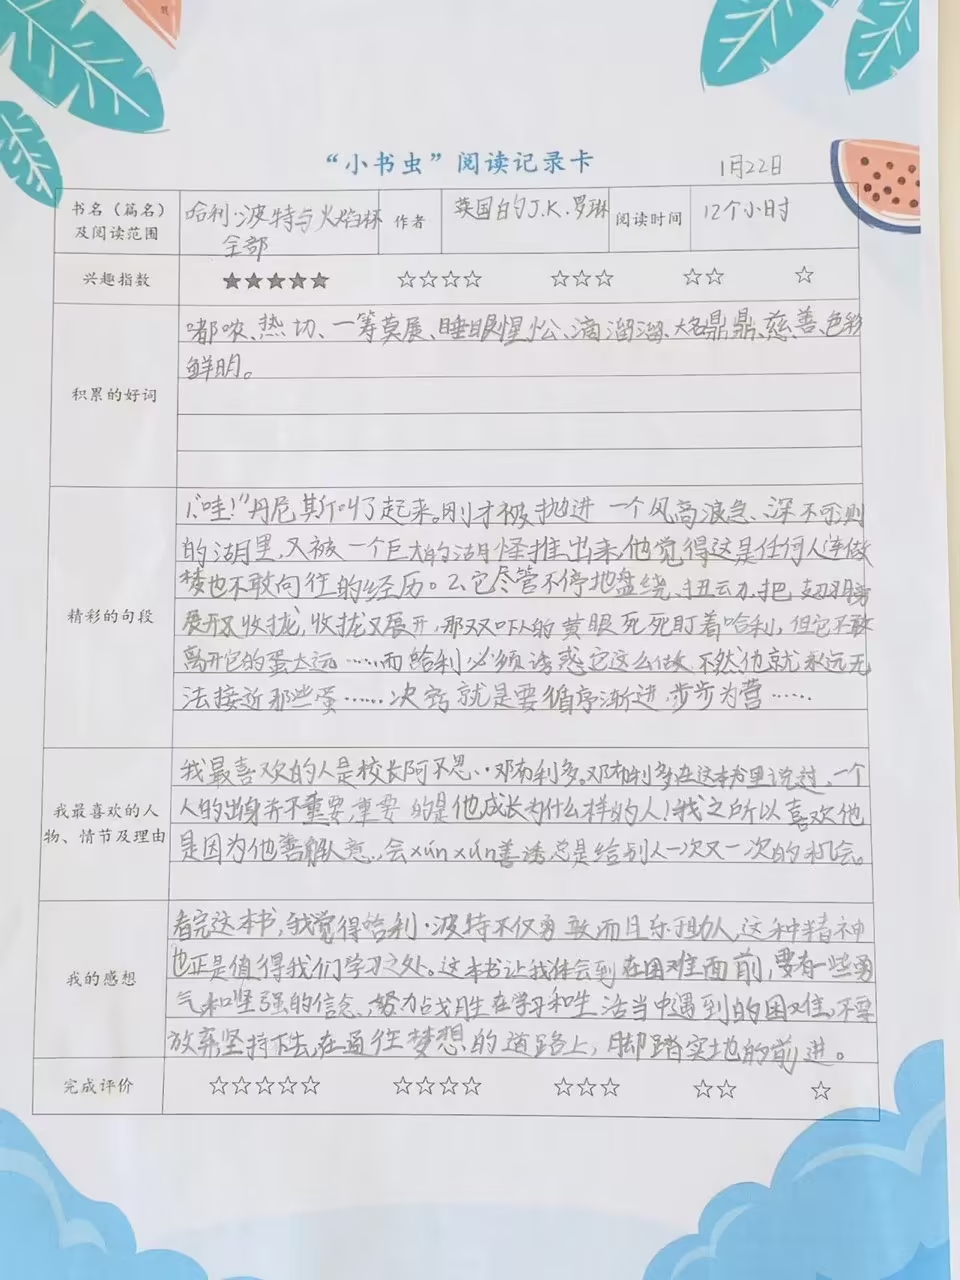 “小书虫”阅读记录卡 1月22日
书名（篇名）及阅读范围 哈利·波特与火焰杯 全部 作者 英国的J.K.罗琳 阅读时间 12个小时
兴趣指数 ★★★★★ ☆☆☆☆ ☆☆☆ ☆☆ ☆
积累的好词
嘟哝、热切、一筹莫展、睡眼惺忪、滴溜溜、大名鼎鼎、慈善、色彩
鲜明。
精彩的句段
1.“哇!”丹尼斯叫了起来。刚才被抛进一个风高浪急、深不可测
的湖里,又被一个巨大的湖怪推出来,他觉得这是任何人连做
梦也不敢向往的经历。2.它尽管不停地盘绕、扭动,把翅膀
展开又收拢,收拢又展开,那双吓人的黄眼死死盯着哈利,但它不敢
离开它的蛋太远……而哈利必须诱惑它这么做,不然他就永远无
法接近那些蛋……决窍就是要循序渐进,步步为营……
我最喜欢的人物、情节及理由
我最喜欢的人是校长阿不思·邓布利多。邓布利多在这本书里说过,一个
人的出身并不重要,重要的是他成长为什么样的人!我之所以喜欢他
是因为他善解人意,会xúnxún善诱,总是给别人一次又一次的机会。
我的感想
看完这本书,我觉得哈利·波特不仅勇敢而且乐于助人,这种精神
也正是值得我们学习之处。这本书让我体会到在困难面前,要有一些勇
气和坚强的信念、努力战胜在学习和生活当中遇到的困难,不要
放弃,坚持下去,在通往梦想的道路上，脚踏实地的前进。
完成评价 ☆☆☆☆☆ ☆☆☆☆ ☆☆☆ ☆☆ ☆